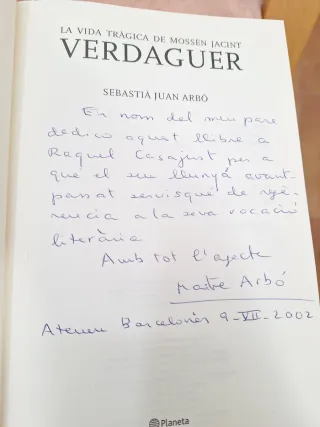 LA VIDA TRÀGICA DE MOSSÈN JACINT
VERDAGUER
SEBASTIÀ JUAN ARBÓ
En nom del meu pare
dedico aquest llibre a
Raquel Casajust per a
què el seu llunyá avant-
passat servisqué de refe-
rencia a la seva vocació
literària
Amb tot l'afecte
Maite Arbó
Ateneu Barcelonès 9-VII-2002
Planeta